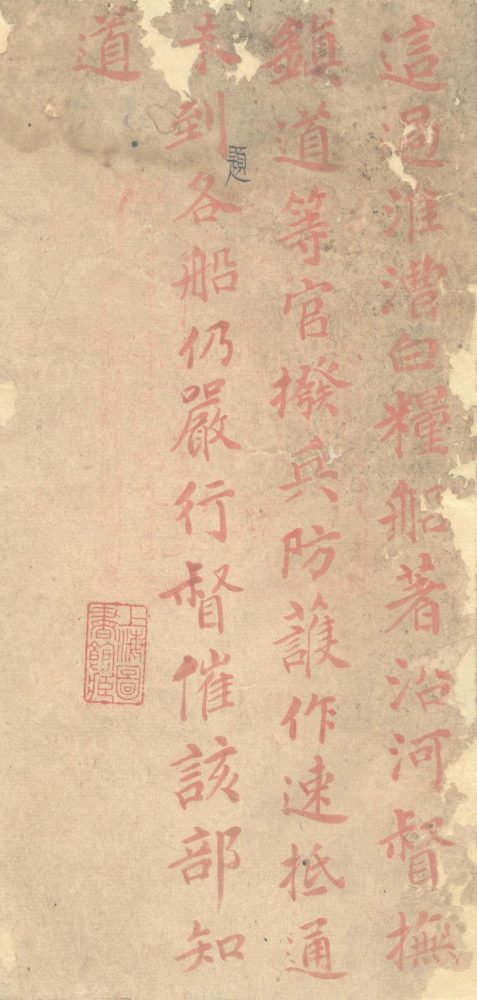 這過淮漕白糧船著沿河督撫
鎮道等官撥兵防護作速抵通
未到各船仍嚴行督催該部知
道
題
上海圖書館藏